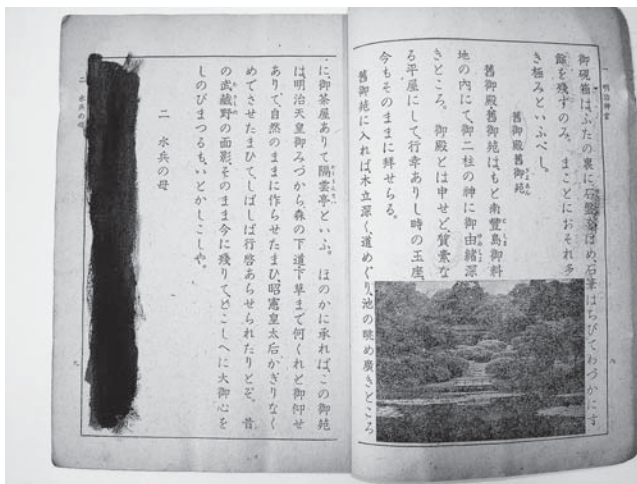 一 明治神宮
八
御硯箱は、ふたの裏に石盤をはめ、石筆はちびてわづかにす
餘を殘すのみ。まことにおそれ多
き極みといふべし。
舊御殿舊御苑
舊御殿舊御苑は、もと南豐島御料
地の內にて、御二柱の神に御由緒深
きところ。御殿とは申せど、質素な
る平屋にして行幸ありし時の玉座、
今もそのままに拜せらる。
舊御苑に入れば、木立深く、道めぐり、池の眺め廣きところ
に、御茶屋ありて隔雲亭といふ。ほのかに承れば、この御苑
は、明治天皇御みづから、森の下道下草まで何くれと御仰せ
ありて、自然のままに作らせたまひ、昭憲皇太后、かぎりなく
めでさせたまひて、しばしば行啓あらせられたりとぞ。昔
の武藏野の面影、そのまま今に殘りて、とこしへに大御心を
しのびまつるも、いとかしこしや。
二 水兵の母
二 水兵の母
九